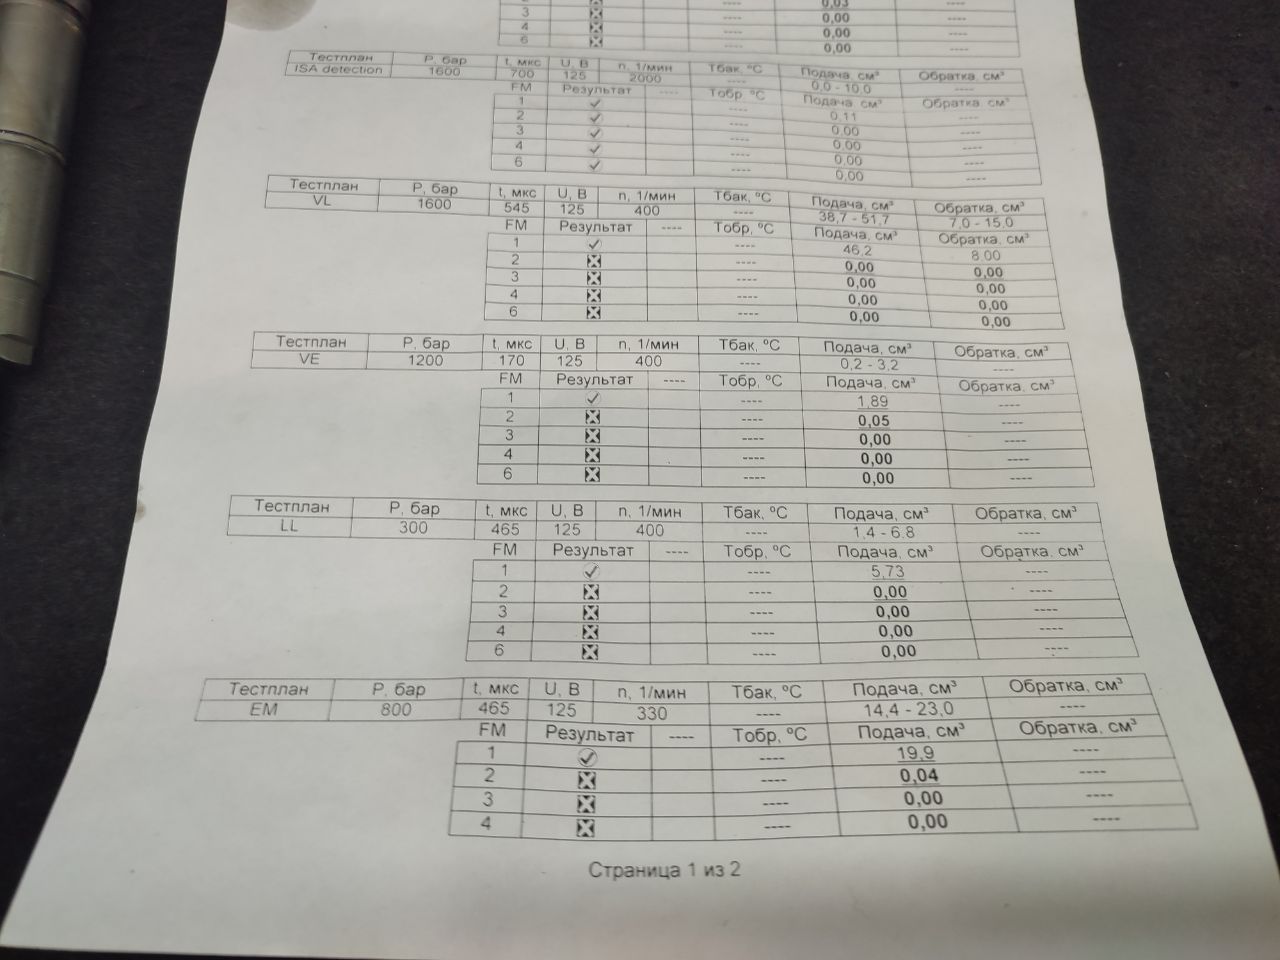 2 ---- 0,03 ----
3 ---- 0,00 ----
4 ---- 0,00 ----
6 ---- 0,00 ----
Тестплан Р, бар t, мкс U, В n, 1/мин Тбак, ºС Подача, см³ Обратка, см³
ISA detection 1600 700 125 2000 ---- 0,0 - 10,0 ----
FM Результат ---- Тобр, ºС Подача, см³ Обратка, см³
1 ---- 0,11 ----
2 ---- 0,00 ----
3 ---- 0,00 ----
4 ---- 0,00 ----
6 ---- 0,00 ----
Тестплан Р, бар t, мкс U, В n, 1/мин Тбак, ºС Подача, см³ Обратка, см³
VL 1600 545 125 400 ---- 38,7 - 51,7 7,0 - 15,0
FM Результат ---- Тобр, ºС Подача, см³ Обратка, см³
1 ---- 46,2 8,00
2 ---- 0,00 0,00
3 ---- 0,00 0,00
4 ---- 0,00 0,00
6 ---- 0,00 0,00
Тестплан Р, бар t, мкс U, В n, 1/мин Тбак, ºС Подача, см³ Обратка, см³
VE 1200 170 125 400 ---- 0,2 - 3,2 ----
FM Результат ---- Тобр, ºС Подача, см³ Обратка, см³
1 ---- 1,89 ----
2 ---- 0,05 ----
3 ---- 0,00 ----
4 ---- 0,00 ----
6 ---- 0,00 ----
Тестплан Р, бар t, мкс U, В n, 1/мин Тбак, ºС Подача, см³ Обратка, см³
LL 300 465 125 400 ---- 1,4 - 6,8 ----
FM Результат ---- Тобр, ºС Подача, см³ Обратка, см³
1 ---- 5,73 ----
2 ---- 0,00 ----
3 ---- 0,00 ----
4 ---- 0,00 ----
6 ---- 0,00 ----
Тестплан Р, бар t, мкс U, В n, 1/мин Тбак, ºС Подача, см³ Обратка, см³
EM 800 465 125 330 ---- 14,4 - 23,0 ----
FM Результат ---- Тобр, ºС Подача, см³ Обратка, см³
1 ---- 19,9 ----
2 ---- 0,04 ----
3 ---- 0,00 ----
4 ---- 0,00 ----
Страница 1 из 2